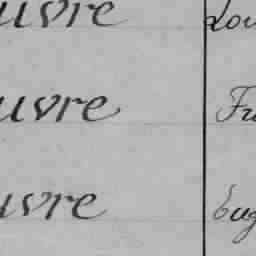 uvre Lou
uvre Fr
uvre Eug